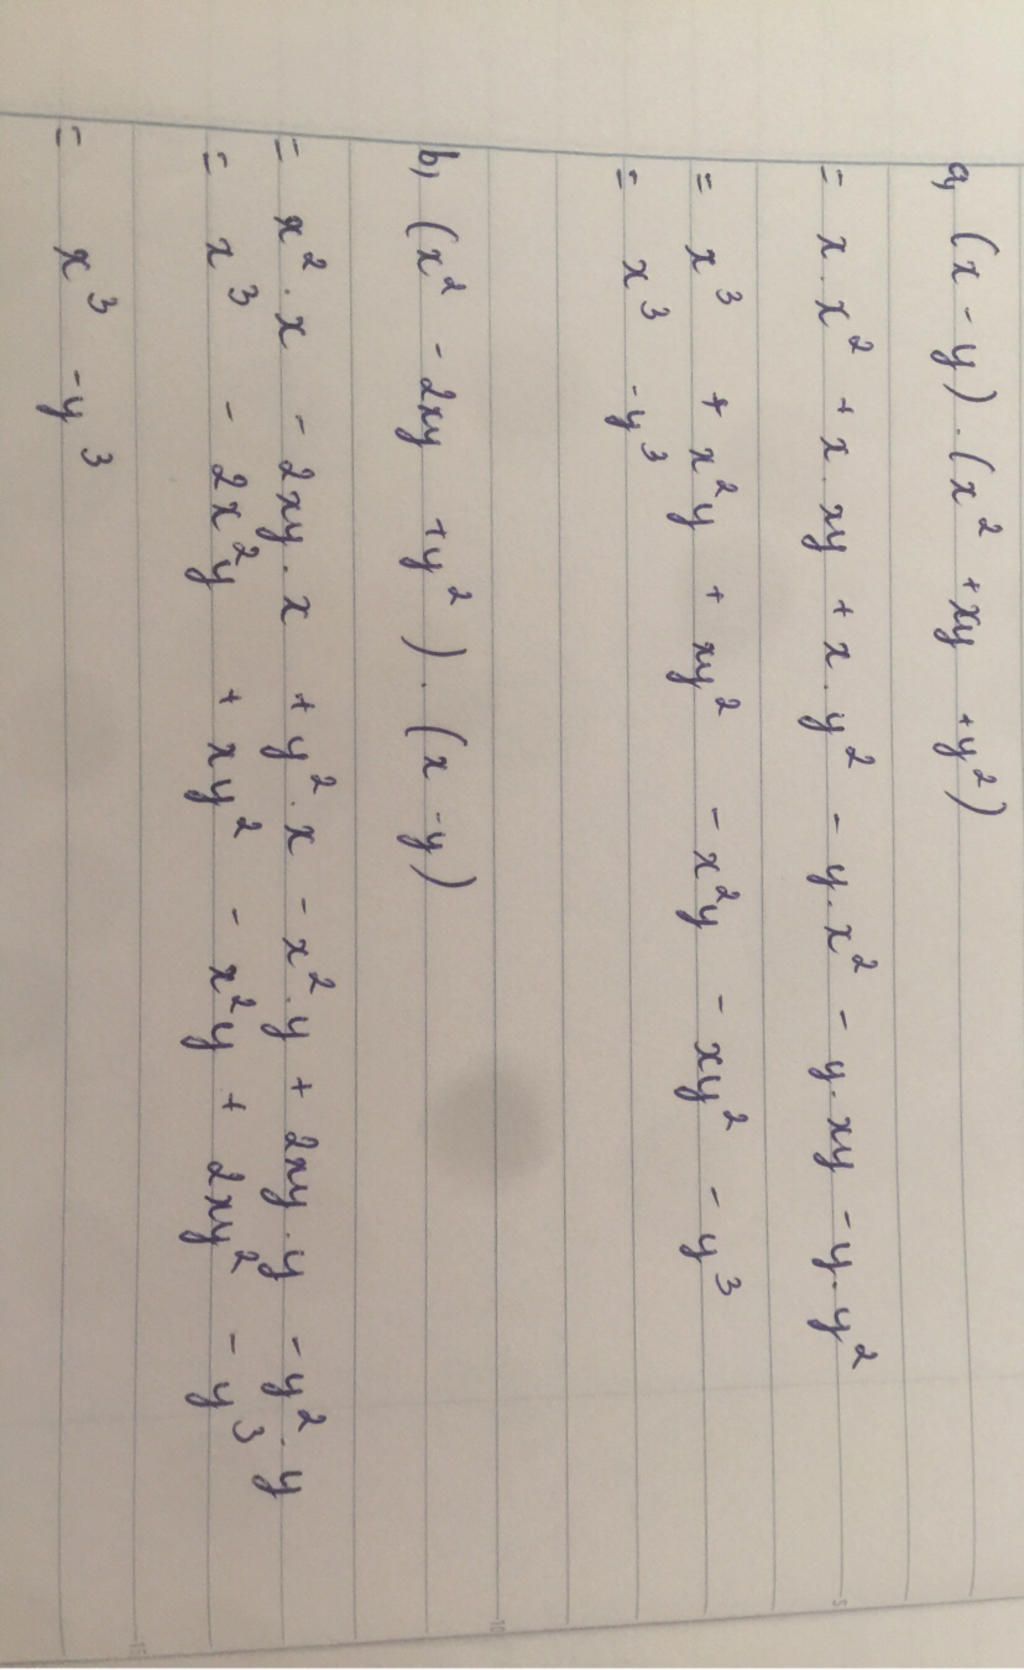 a, (x - y) . (x² + xy + y²)
= x . x² + x . xy + x . y² - y . x² - y . xy - y . y²
= x³ + x²y + xy² - x²y - xy² - y³
= x³ - y³
b, (x² - 2xy + y²) . (x - y)
= x² . x - 2xy . x + y² . x - x² . y + 2xy . y - y² . y
= x³ - 2x²y + xy² - x²y + 2xy² - y³
= x³ - y³